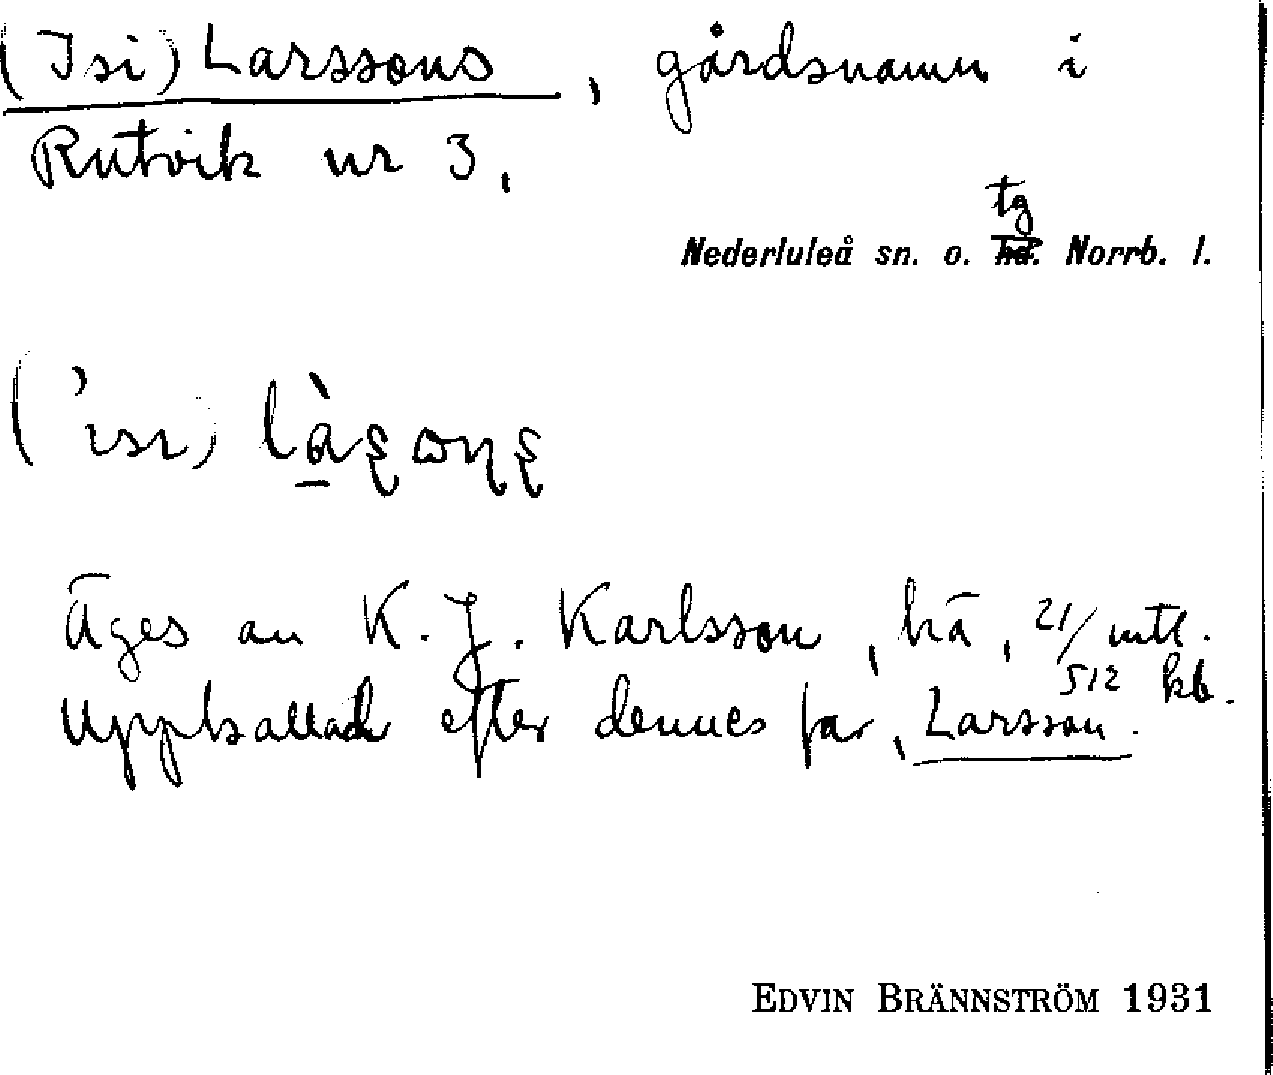 (Isi) Larssons, gårdsnamn i
Rutvik nr 3,
tg
Nederluleå sn. o. hd. Norrb. l.
('ısı)
Äges av K. J. Karlsson, hä, 21/512 mtl. kb.
Uppkallad efter dennes far, Larsson.
EDVIN BRÄNNSTRÖM 1931